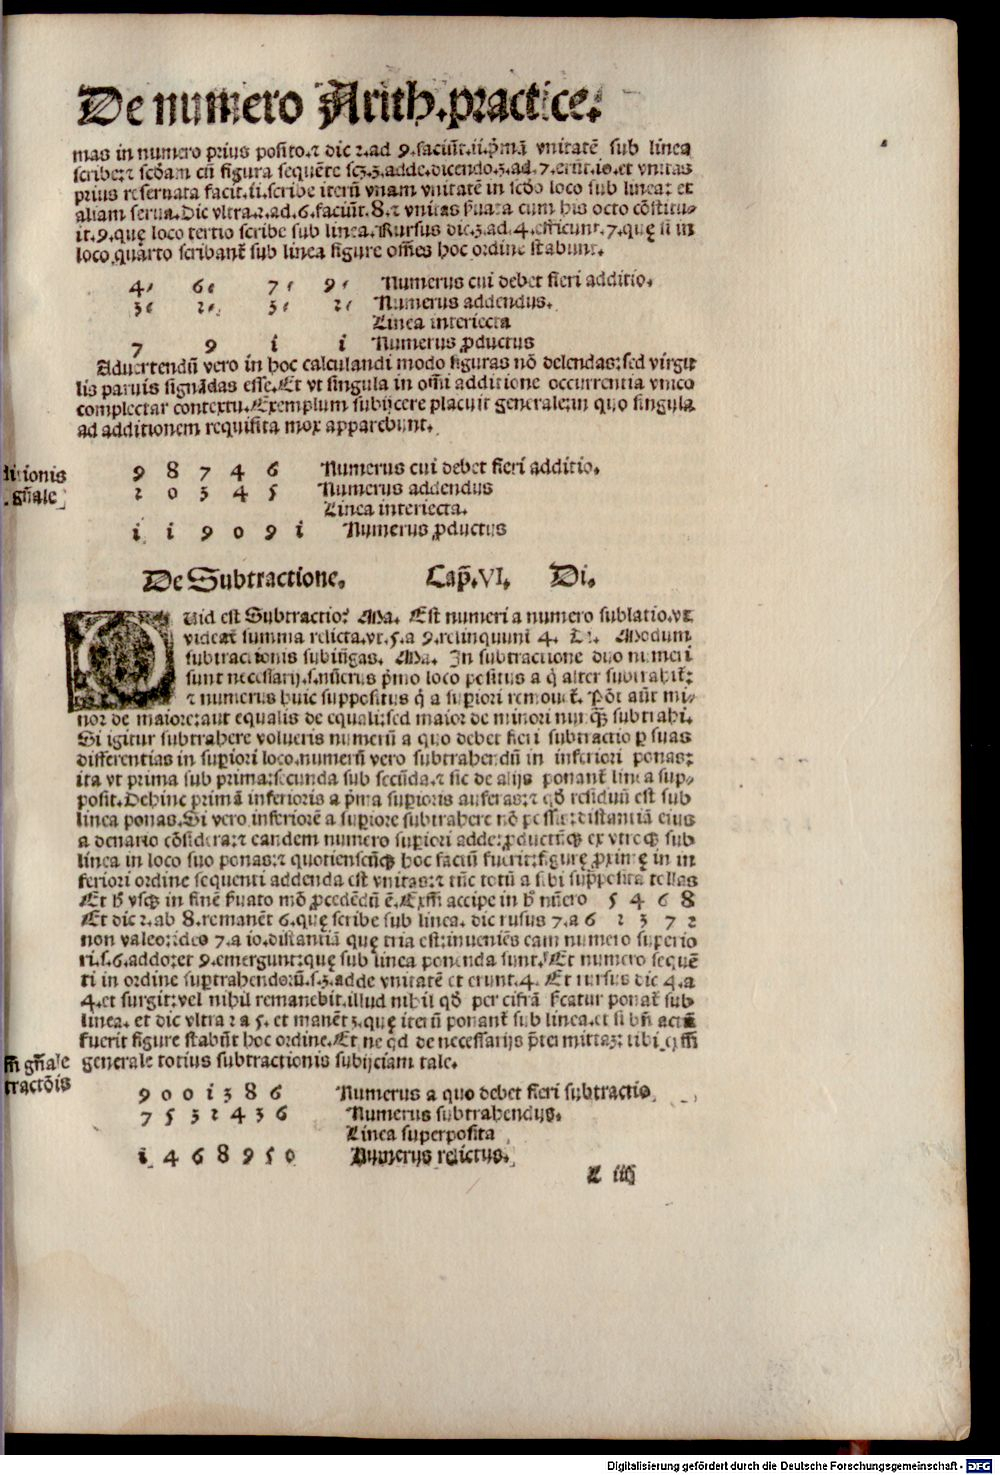 De numero Arith.practice.
mas in numero prius posito.⁊ dic 2.ad 9.faciūt.11.p̄mā vnitatē sub linea
scribe:⁊ scd̄am cū figura sequēte scz.3.adde.dicendo.3.ad.7.erūt.10.et vnitas
prius reseruata facit.11.scribe iterū vnam vnitatē in scd̄o loco sub linea: et
aliam serua.Dic vltra.2.ad.6.faciūt.8.⁊ vnitas ſuata cum his octo cōstitu-
it.9.quę loco tertio scribe sub linea.Rursus dic.3.ad.4.efficiunt.7.quę si in
loco quarto scribant̄ sub linea figure om̄es hoc ordine stabunt.
4. 6. 7. 9. Numerus cui debet fieri additio.
3. 2. 3. 2. Numerus addendus.
Linea interiecta
7 9 1 1 Numerus ꝓductus
Aduertendū vero in hoc calculandi modo figuras nō delendas:sed virgu
lis paruis signādas esse.Et vt singula in om̄i additione occurrentia vnico
complectar contextu.Exemplum subijcere placuit generale:in quo singula
ad additionem requisita mox apparebunt.
ditionis
.gn̄ale
9 8 7 4 6 Numerus cui debet fieri additio.
2 0 3 4 5 Numerus addendus
Linea interiecta.
1 1 9 0 9 1 Numerus ꝓductus
De Subtractione. Cap̄.VI. Di.
QVid est Subtractio? Ma. Est numeri a numero sublatio.vt
videat̄ summa relicta.vt.5.a 9.relinquunt 4. Di. Modum
subtractionis subiūgas. Ma. In subtractione duo numeri
sunt necessarij.s.nūerus p̄mo loco positus a q̊ alter subtrahit̄:
⁊ numerus huic suppositus q̊ a suꝑiori remouet̄. Pōt aūt mi-
nor de maiore:aut equalis de equali:sed maior de minori nunq̄ꝫ subtrahi.
Si igitur subtrahere volueris numerū a quo debet fieri subtractio ꝑ suas
differentias in suꝑiori loco.numerū vero subtrahendū in inferiori ponas:
ita vt prima sub prima:secunda sub secūda.⁊ sic de alijs ponant̄ linea sup-
posit.Dehinc primā inferioris a p̄ma suꝑioris auferas:⁊ qd̄ residuū est sub
linea ponas.Si vero inferiorē a suꝑiore subtrahere nō possis:distantiā eius
a denario cōsidera:⁊ eandem numero suꝑiori adde:ꝓductūqꝫ ex vtroqꝫ sub
linea in loco suo ponas:⁊ quotienscūqꝫ hoc factū fuerit:figurę ꝓximę in in
feriori ordine sequenti addenda est vnitas:⁊ tūc totū a sibi supposita tollas
Et h̄ vsqꝫ in finē ſuato mō ꝓcedēdū ē.Exm̄ accipe in h̄ nūero 5 4 6 8
Et dic 2.ab 8.remanēt 6.quę scribe sub linea. dic rusus 7.a 6 2 3 7 2
non valeo:ideo 7.a 10.distantiā quę tria est:inueniēs eam numero superio
ri.s.6.addo:et 9.emergunt:quę sub linea ponenda sunt.Et numero sequē
ti in ordine suꝑtrahendorū.s.3.adde vnitatē et erunt.4. Et rursus dic 4.a
4.et surgit:vel nihil remanebit.illud nihil qd̄ per cifrā ſcatur ponat̄ sub
linea. et dic vltra 2 a 5. et manēt 3.quę iterū ponant̄ sub linea.et si bn̄ actū
fuerit figure stabūt hoc ordine.Et ne qd̄ de necessarijs p̄termittaꝫ: tibi exm̄
generale totius subtractionis subijciam tale.
exm̄ gn̄ale
tractōis
9 0 0 1 3 8 6 Numerus a quo debet fieri subtractio
7 5 3 2 4 3 6 Numerus subtrahendus.
Linea superposita
1 4 6 8 9 5 0 Numerus relictus.
L iiij
Digitalisierung gefördert durch die Deutsche Forschungsgemeinschaft - DFG